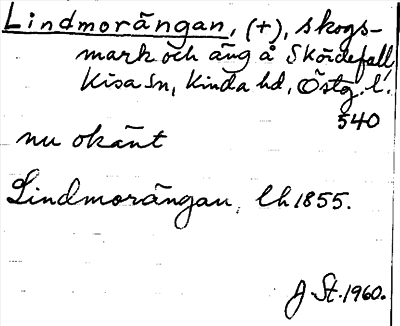 Lindmorängan, (+), skogs-
mark och äng å Skördefall,
Kisa sn, Kinda hd, Östg. l.
540
nu okänt
Lindmorängan, lh 1855.
J. St. 1960.